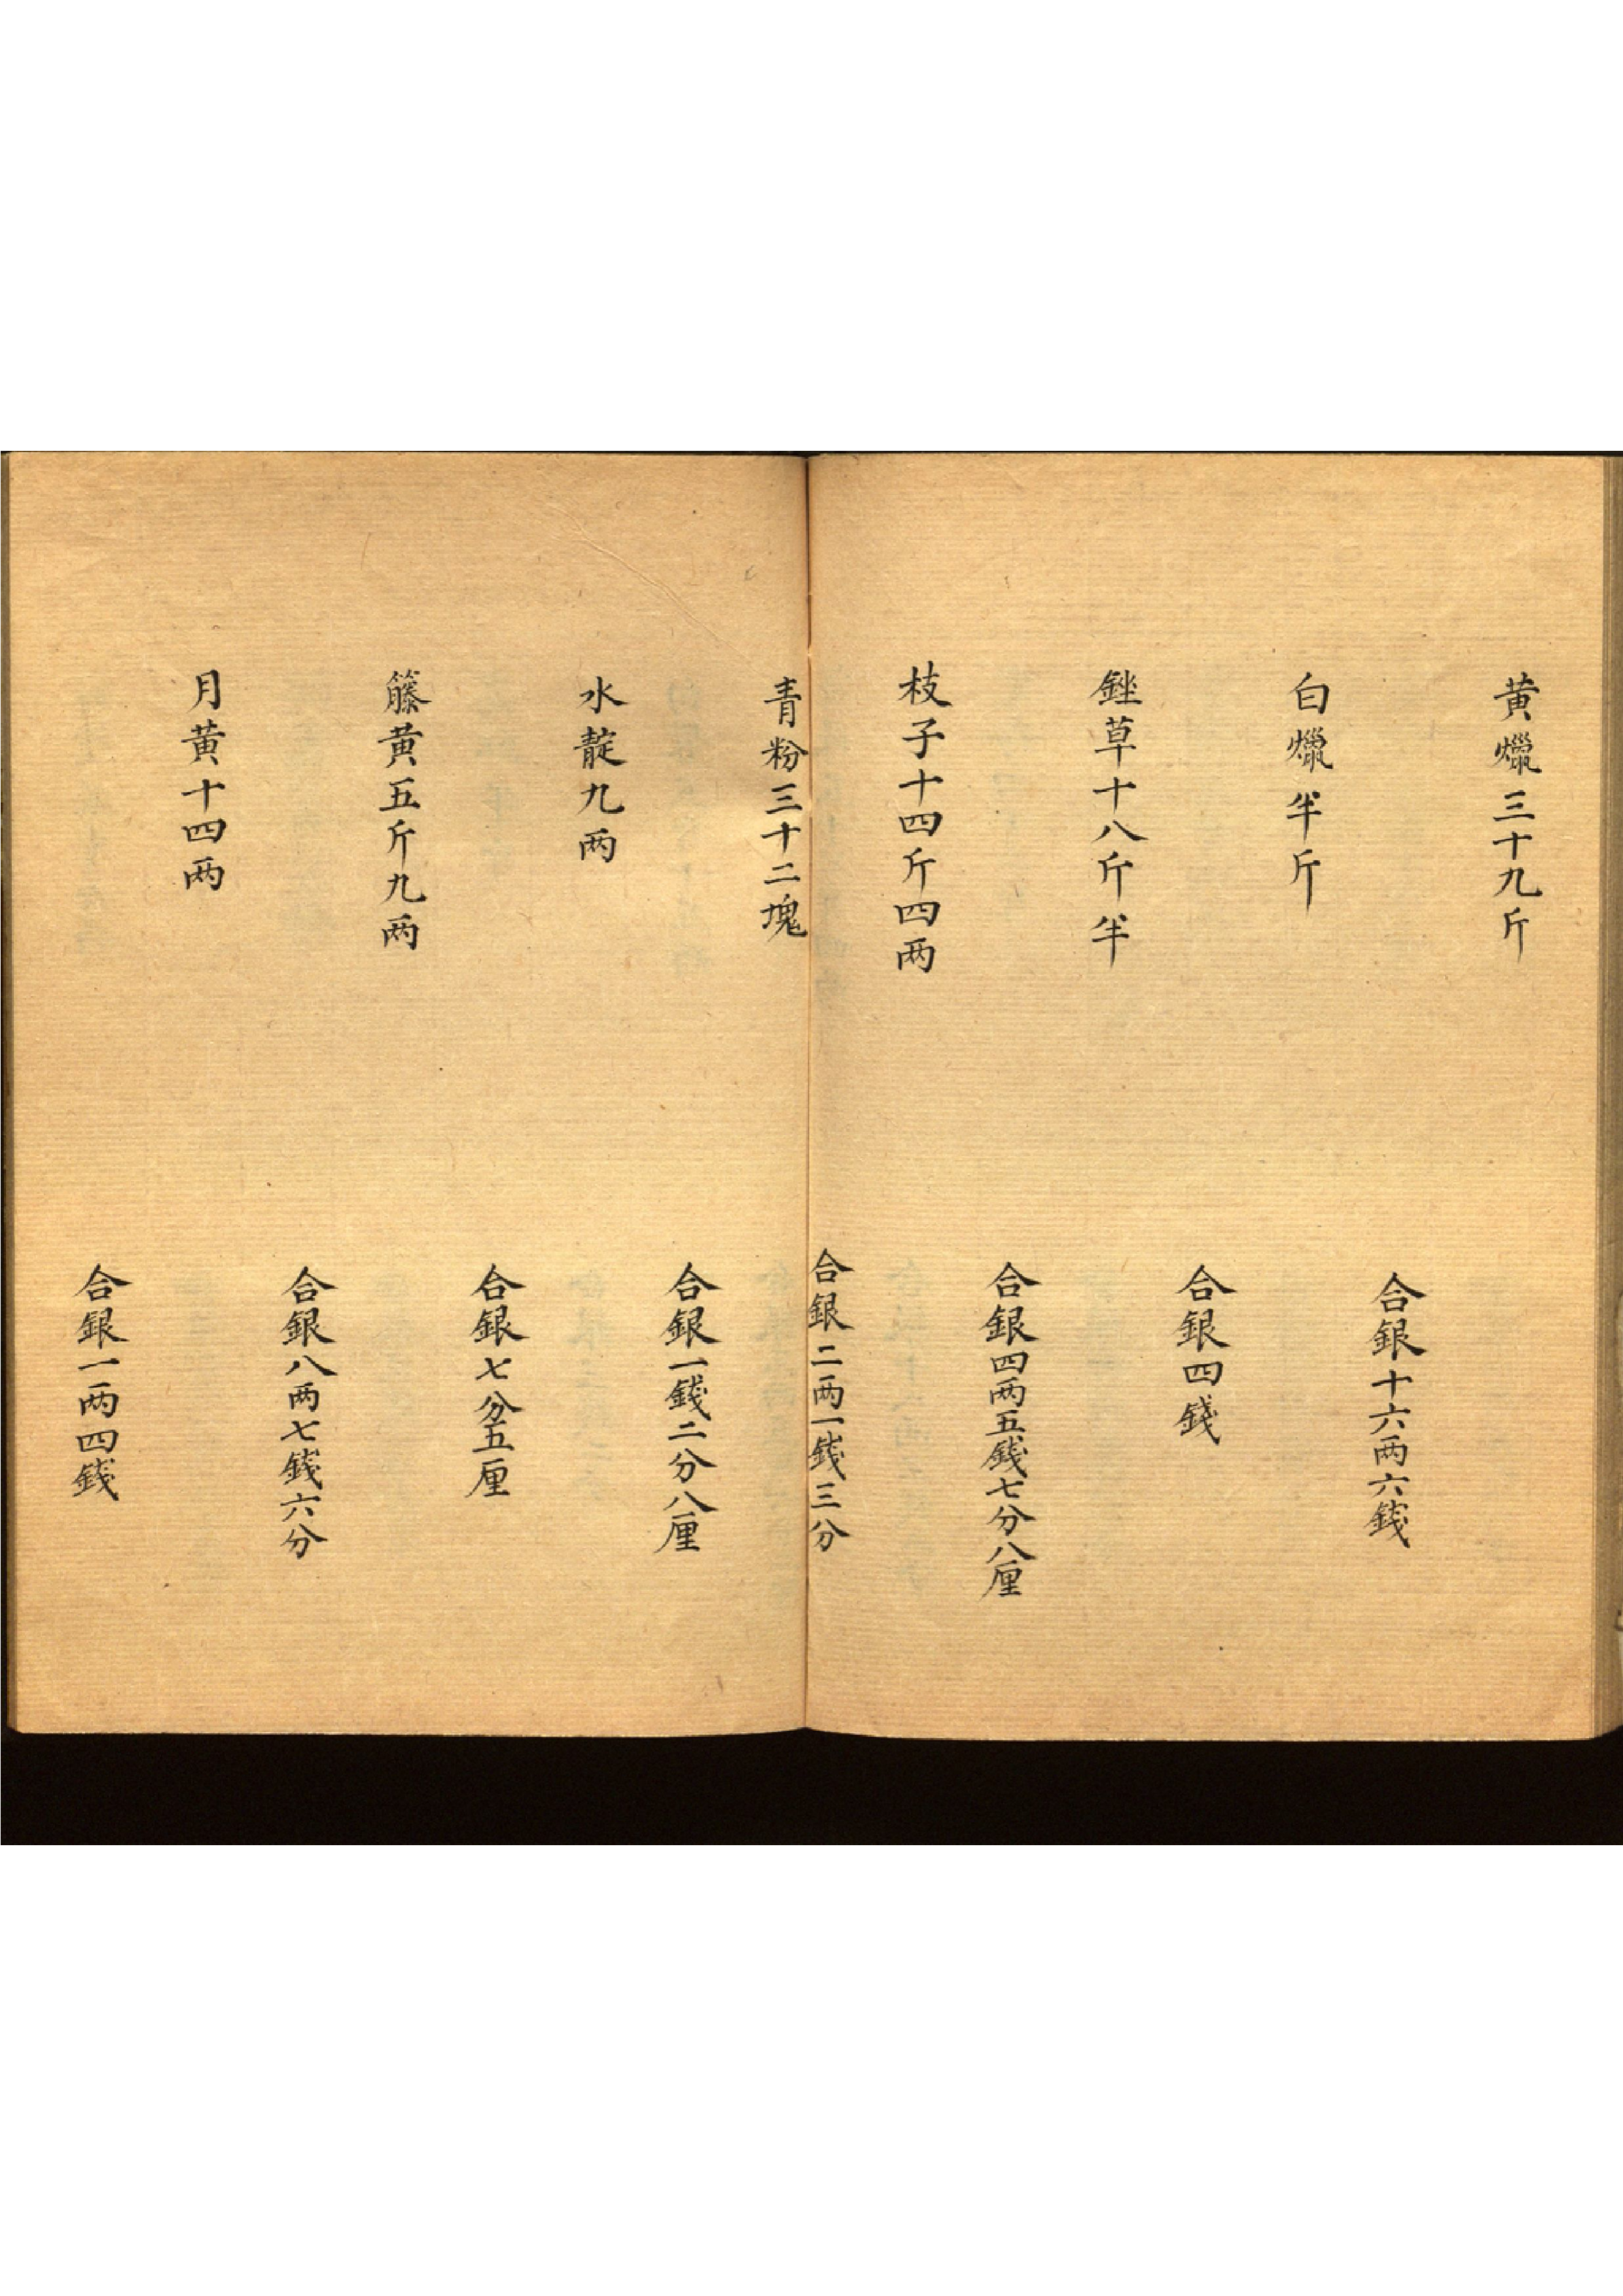 黄爉三十九斤
合銀十六两六錢
白爉半斤
合銀四錢
銼草十八斤半
合銀四两五錢七分八厘
枝子十四斤四两
合銀二两一錢三分
青粉三十二塊
合銀一錢二分八厘
水靛九两
合銀七分五厘
籐黄五斤九两
合銀八两七錢六分
月黄十四两
合銀一两四錢